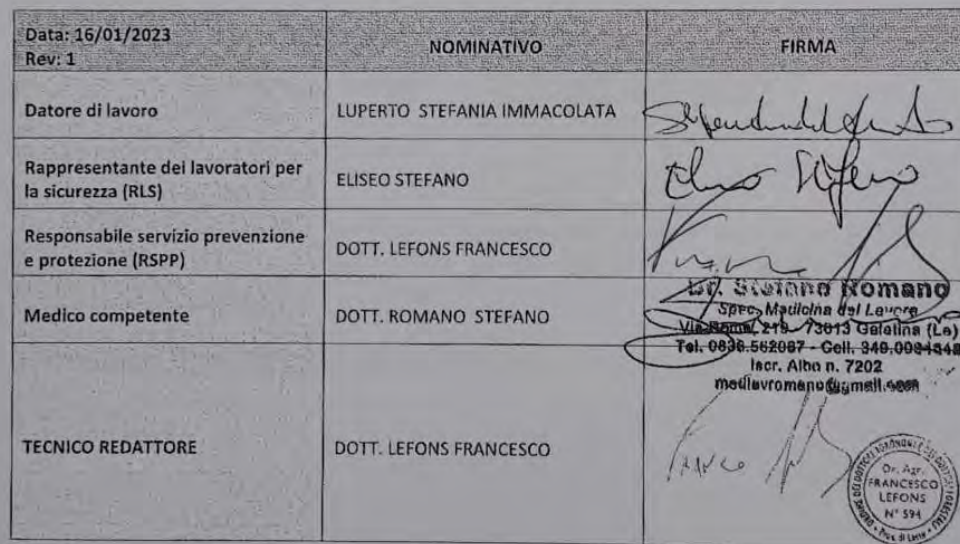 Data: 16/01/2023
Rev: 1
NOMINATIVO
FIRMA
Datore di lavoro
LUPERTO STEFANIA IMMACOLATA
Rappresentante dei lavoratori per
la sicurezza (RLS)
ELISEO STEFANO
Eliseo Stefano
Responsabile servizio prevenzione
e protezione (RSPP)
DOTT. LEFONS FRANCESCO
Medico competente
DOTT. ROMANO STEFANO
Dr. Stefano Romano
Spec. Medicina del Lavoro
Via Roma, 219 - 73013 Galatina (Le)
Tel. 0836.562087 - Cell.
Iscr. Albo n. 7202
medlavromano@gmail.com
TECNICO REDATTORE
DOTT. LEFONS FRANCESCO
Dr. Agr.
FRANCESCO
LEFONS
N° 594
Prov. di Lecce